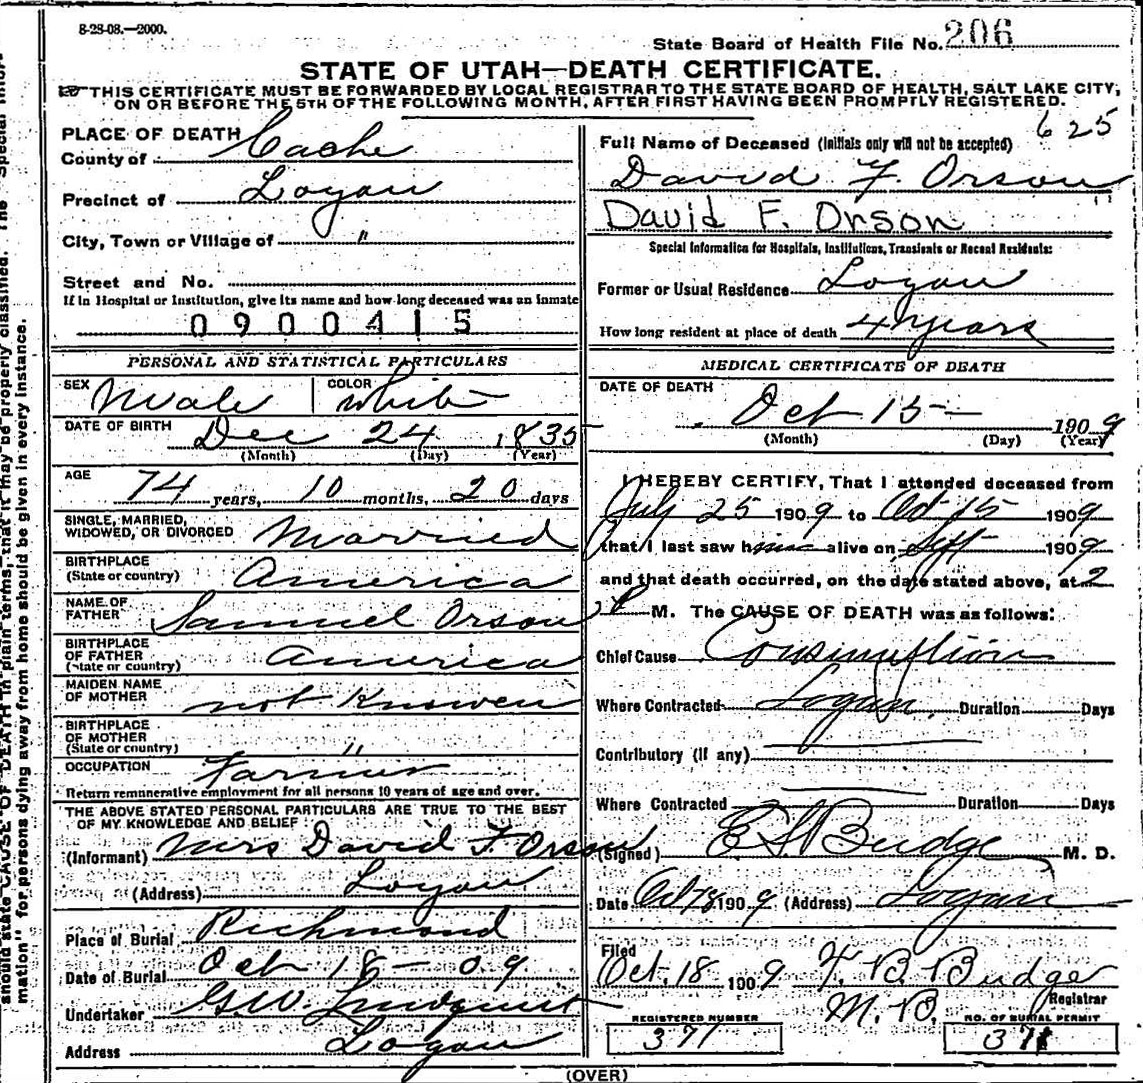 8-28-08.—2000.
State Board of Health File No. 206
STATE OF UTAH—DEATH CERTIFICATE.
THIS CERTIFICATE MUST BE FORWARDED BY LOCAL REGISTRAR TO THE STATE BOARD OF HEALTH, SALT LAKE CITY,
ON OR BEFORE THE 5TH OF THE FOLLOWING MONTH, AFTER FIRST HAVING BEEN PROMPTLY REGISTERED.
PLACE OF DEATH
County of Cache
Precinct of Logan
City, Town or Village of "
Street and No.
If in Hospital or Institution, give its name and how long deceased was an inmate
0900415
PERSONAL AND STATISTICAL PARTICULARS
SEX Male COLOR White
DATE OF BIRTH Dec 24 1835
(Month) (Day) (Year)
AGE 74 years, 10 months, 20 days
SINGLE, MARRIED,
WIDOWED, OR DIVORCED Married
BIRTHPLACE
(State or country) America
NAME OF
FATHER Samuel Orson
BIRTHPLACE
OF FATHER
(State or country) America
MAIDEN NAME
OF MOTHER not Knowen
BIRTHPLACE
OF MOTHER
(State or country) "
OCCUPATION Farmer
Return remunerative employment for all persons 10 years of age and over.
THE ABOVE STATED PERSONAL PARTICULARS ARE TRUE TO THE BEST
OF MY KNOWLEDGE AND BELIEF:
(Informant) Mrs David F. Orson
(Address) Logan
Place of Burial Richmond
Date of Burial Oct 18-09
Undertaker G.W. Lindquist
Address Logan
625
Full Name of Deceased (Initials only will not be accepted)
David F. Orson
David F. Orson "
Special Information for Hospitals, Institutions, Transients or Recent Residents:
Former or Usual Residence Logan
How long resident at place of death 4 years
MEDICAL CERTIFICATE OF DEATH
DATE OF DEATH
Oct 15— 1909
(Month) (Day) (Year)
I HEREBY CERTIFY, That I attended deceased from
July 25 1909 to Oct 15 1909
that I last saw him alive on Sept 1909
and that death occurred, on the date stated above, at 2
P M. The CAUSE OF DEATH was as follows:
Chief Cause Consumption
Where Contracted Logan. Duration Days
Contributory (if any)
Where Contracted Duration Days
(Signed) E.S. Budge M. D.
Date Oct 18 1909 (Address) Logan
Filed
Oct. 18 1909 F. B. Budge
M. B. Registrar
REGISTERED NUMBER
371
NO. OF BURIAL PERMIT
371
(OVER)
should state CAUSE OF DEATH in plain terms, that it may be properly classified. The "Special Infor-
mation" for persons dying away from home should be given in every instance.